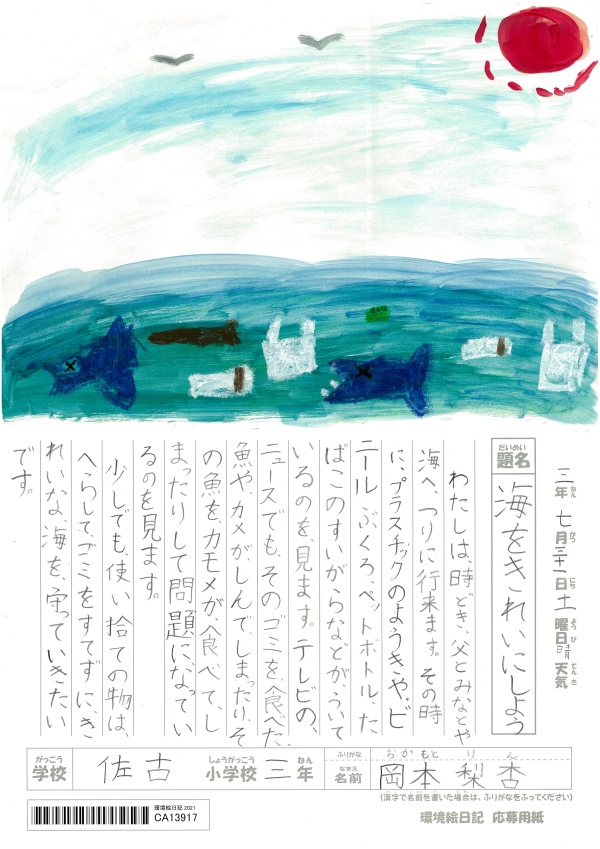 三年七月三十一日土曜日晴天気
ねん がつ にち ようび てんき
だいめい
題名 海をきれいにしよう
わたしは、時どき、父とみなとや
海へ、つりに行来ます。その時
に、プラスチックのようきや、ビ
ニールぶくろ、ペットボトル、た
ばこのすいがらなどが、ういて
いるのを、見ます。テレビの、
ニュースでも、そのゴミを食べた、
魚や、カメがしんでしまったり、そ
の魚を、カモメが、食べて、し
まったりして問題に、なってい
るのを見ます。
少しでも、使い捨ての物は、
へらして、ゴミをすてずに、き
れいな、海を、守っていきたい
です。
がっこう しょうがっこう ねん ふりがな おかもと りん
学校 佐古 小学校 三年 なまえ 名前 岡本 梨杏
(漢字で名前を書いた場合は、ふりがなをふってください)
環境絵日記 応募用紙
環境絵日記 2021
CA13917